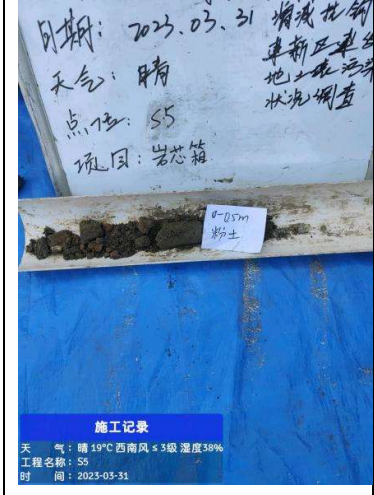 日期: 2023.03.31
天气: 晴
点位: S5
项目: 岩芯箱
阜新区
地土壤污染
状况调查
0-0.5m
粉土
施工记录
天 气: 晴 19°C 西南风 ≤ 3级 湿度38%
工程名称: S5
时 间: 2023-03-31